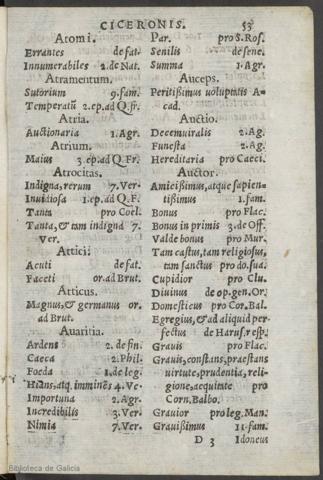 CICERONIS. 53
Atomi.
Errantes de fat.
Innumerabiles 2.de Nat.
Atramentum.
Sutorium 9.fam.
Temperatũ 2.ep.ad Q.fr.
Atria.
Auctionaria 1.Agr.
Atrium.
Maius 3.ep.ad Q.Fr.
Atrocitas.
Indigna,rerum 7.Ver.
Inuidiosa 1.ep.ad Q.F.
Tanta pro Coel.
Tanta,& tam indigna 7.
Ver.
Attici:
Acuti de fat.
Faceti or.ad Brut.
Atticus.
Magnus,& germanus or.
ad Brut.
Auaritia.
Ardens 2.de fin.
Caeca 2.Phil.
Foeda 1.de leg.
Hians,atq. imminẽs 4.Ve.
Importuna 2.Agr.
Incredibilis 3.Ver.
Nimia 7.Ver.
Par. pro S.Rof.
Senilis de sene.
Summa 1.Agr.
Auceps.
Peritißimus uoluptatis A-
cad.
Auctio.
Decemuiralis 2.Ag.
Funesta 2.Ag.
Hereditaria pro Caeci.
Auctor.
Amicißimus,atque sapien-
tißimus 1.fam.
Bonus pro Flac.
Bonus in primis 3.de Off.
Valde bonus pro Mur.
Tam castus,tam religiosus,
tam sanctus pro do.sua.
Cupidior pro Clu.
Diuinus de op.gen.Or.
Domesticus pro Cor.Bal.
Egregius,& ad aliquid per-
fectus de Haruf.resp.
Grauis pro Flac.
Grauis,constans,praestans
uirtute,prudentia,reli-
gione,aequitate pro
Corn.Balbo.
Grauior pro leg.Man.
Grauißimus 11.fam.
D 3 Idoneus
Biblioteca de Galicia